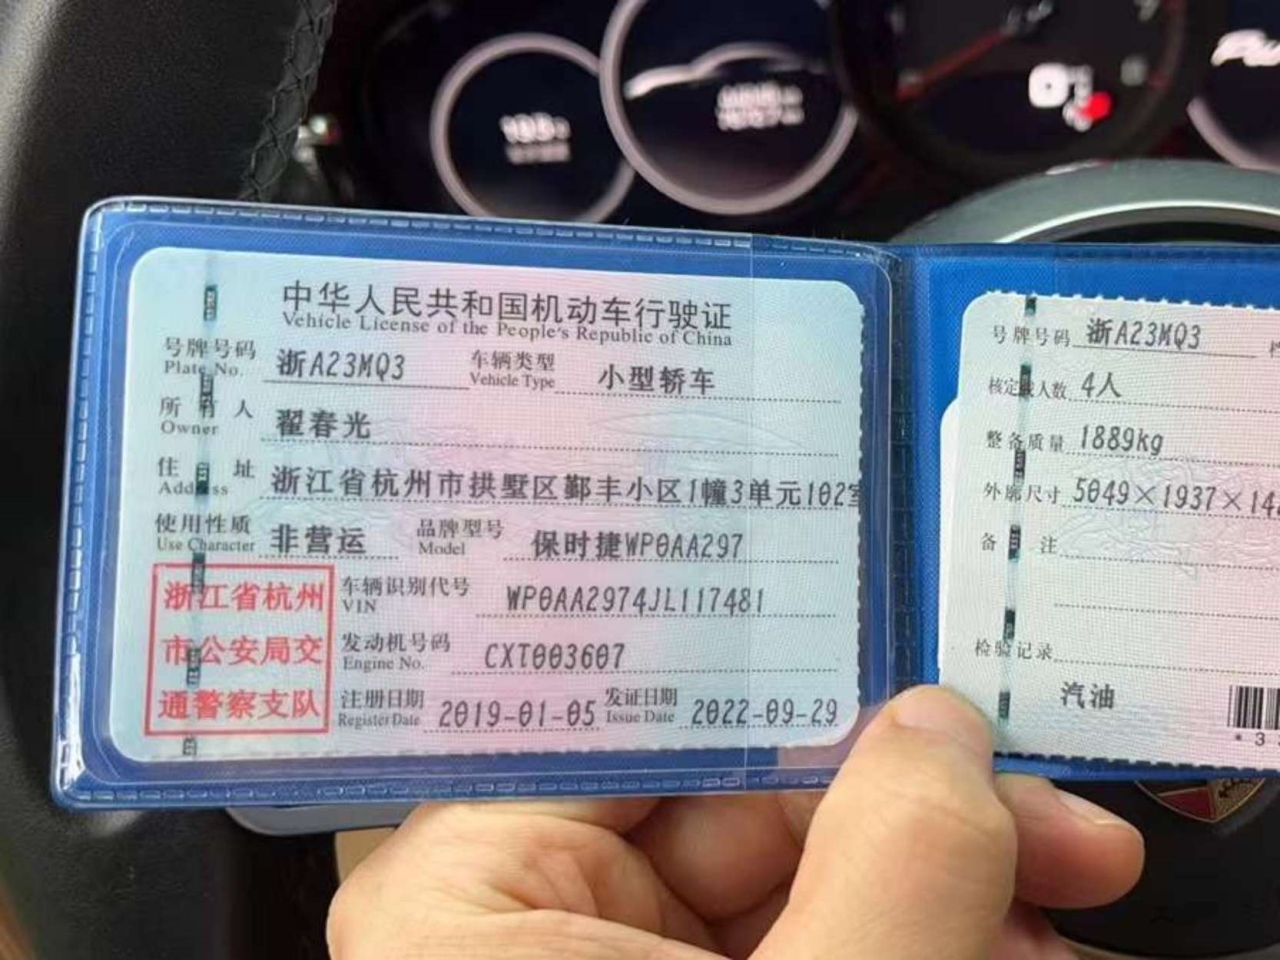 中华人民共和国机动车行驶证
Vehicle License of the People's Republic of China
号牌号码 浙A23MQ3 车辆类型 小型轿车
Plate No. Vehicle Type
所有人 翟春光
Owner
住址 浙江省杭州市拱墅区鄞丰小区1幢3单元102室
Address
使用性质 非营运 品牌型号 保时捷WP0AA297
Use Character Model
浙江省杭州
市公安局交
通警察支队
车辆识别代号 WP0AA2974JL117481
VIN
发动机号码 CXT003607
Engine No.
注册日期 2019-01-05 发证日期 2022-09-29
Register Date Issue Date
号牌号码 浙A23MQ3
核定载人数 4人
整备质量 1889kg
外廓尺寸 5049×1937×14
备注
检验记录
汽油
*3